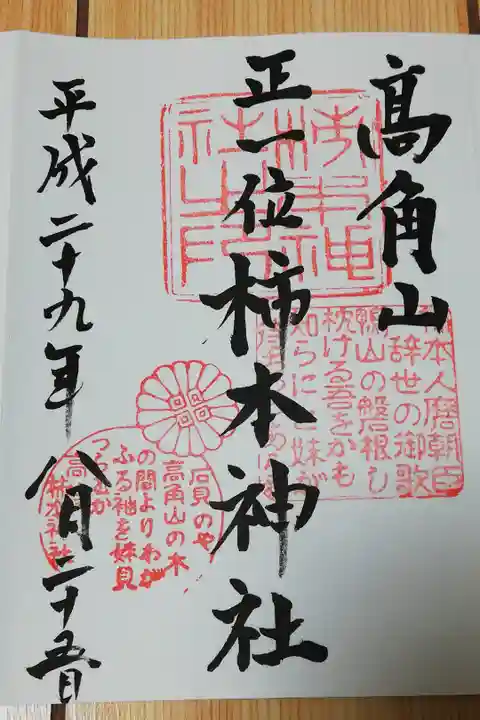 高角山
正一位柿本神社
平成二十九年八月二十五日
柿本神
社之印
柿本人麿朝臣
辞世の御歌
鴨山の磐根し
枕ける吾をかも
知らにと妹が
石見のや
高角山の木
の間よりわが
ふる袖を妹見
つらむか
高角山
柿本神社